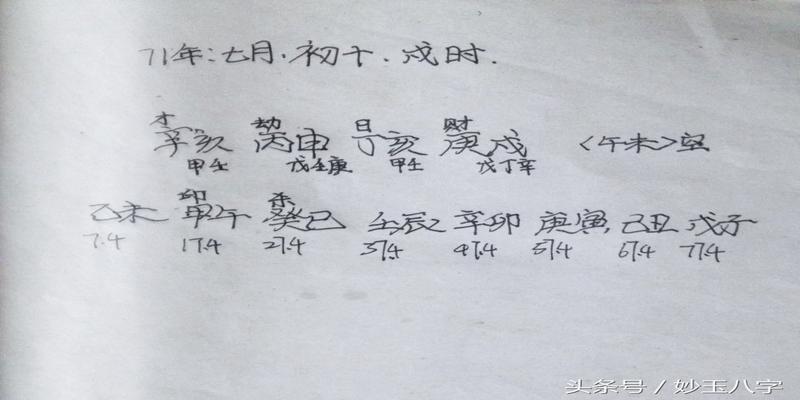 71年:七月.初十.戌时.
才 劫 日 财
辛亥 丙申 丁亥 庚戌 〈午未〉空
甲壬 戊壬庚 甲壬 戊丁辛
印 杀
乙未 甲午 癸巳 壬辰 辛卯 庚寅 己丑 戊子
7.4 17.4 27.4 37.4 47.4 57.4 67.4 77.4
头条号 / 妙玉八字